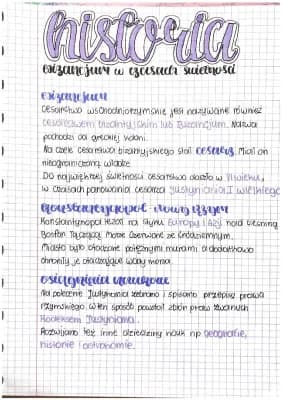 historia
bizancjum w czasach świetności
bizancjum
Cesarstwo wschodniorzymskie jest nazywane również
cesarstwem bizantyjskim lub Bizancjum. Nazwa
pochodzi od greckiej
Na czele cesarstwa bizantyjskiego stał cesarz. Miał on
nieograniczoną władzę.
Do największej świetności cesarstwo doszło w VI wieku,
w czasach panowania cesarza Justyniana I wielkiego
konstantynopol - nowy rzym
Konstantynopol leżał na styku Europy i Azji nad cieśniną
Bosfor łączącą morze czarne ze śródziemnym.
Miasto było otoczone potężnymi murami a dodatkowo
chroniły je otaczające wody morza.
osiągnięcia
Na polecenie Justyniana zebrano i spisano przepisy prawa
rzymskiego. W ten sposób powstał zbiór praw zwanych
Kodeksem Justyniana.
Rozwijano też inne dziedziny nauk np geografię,
historię i astronomię.